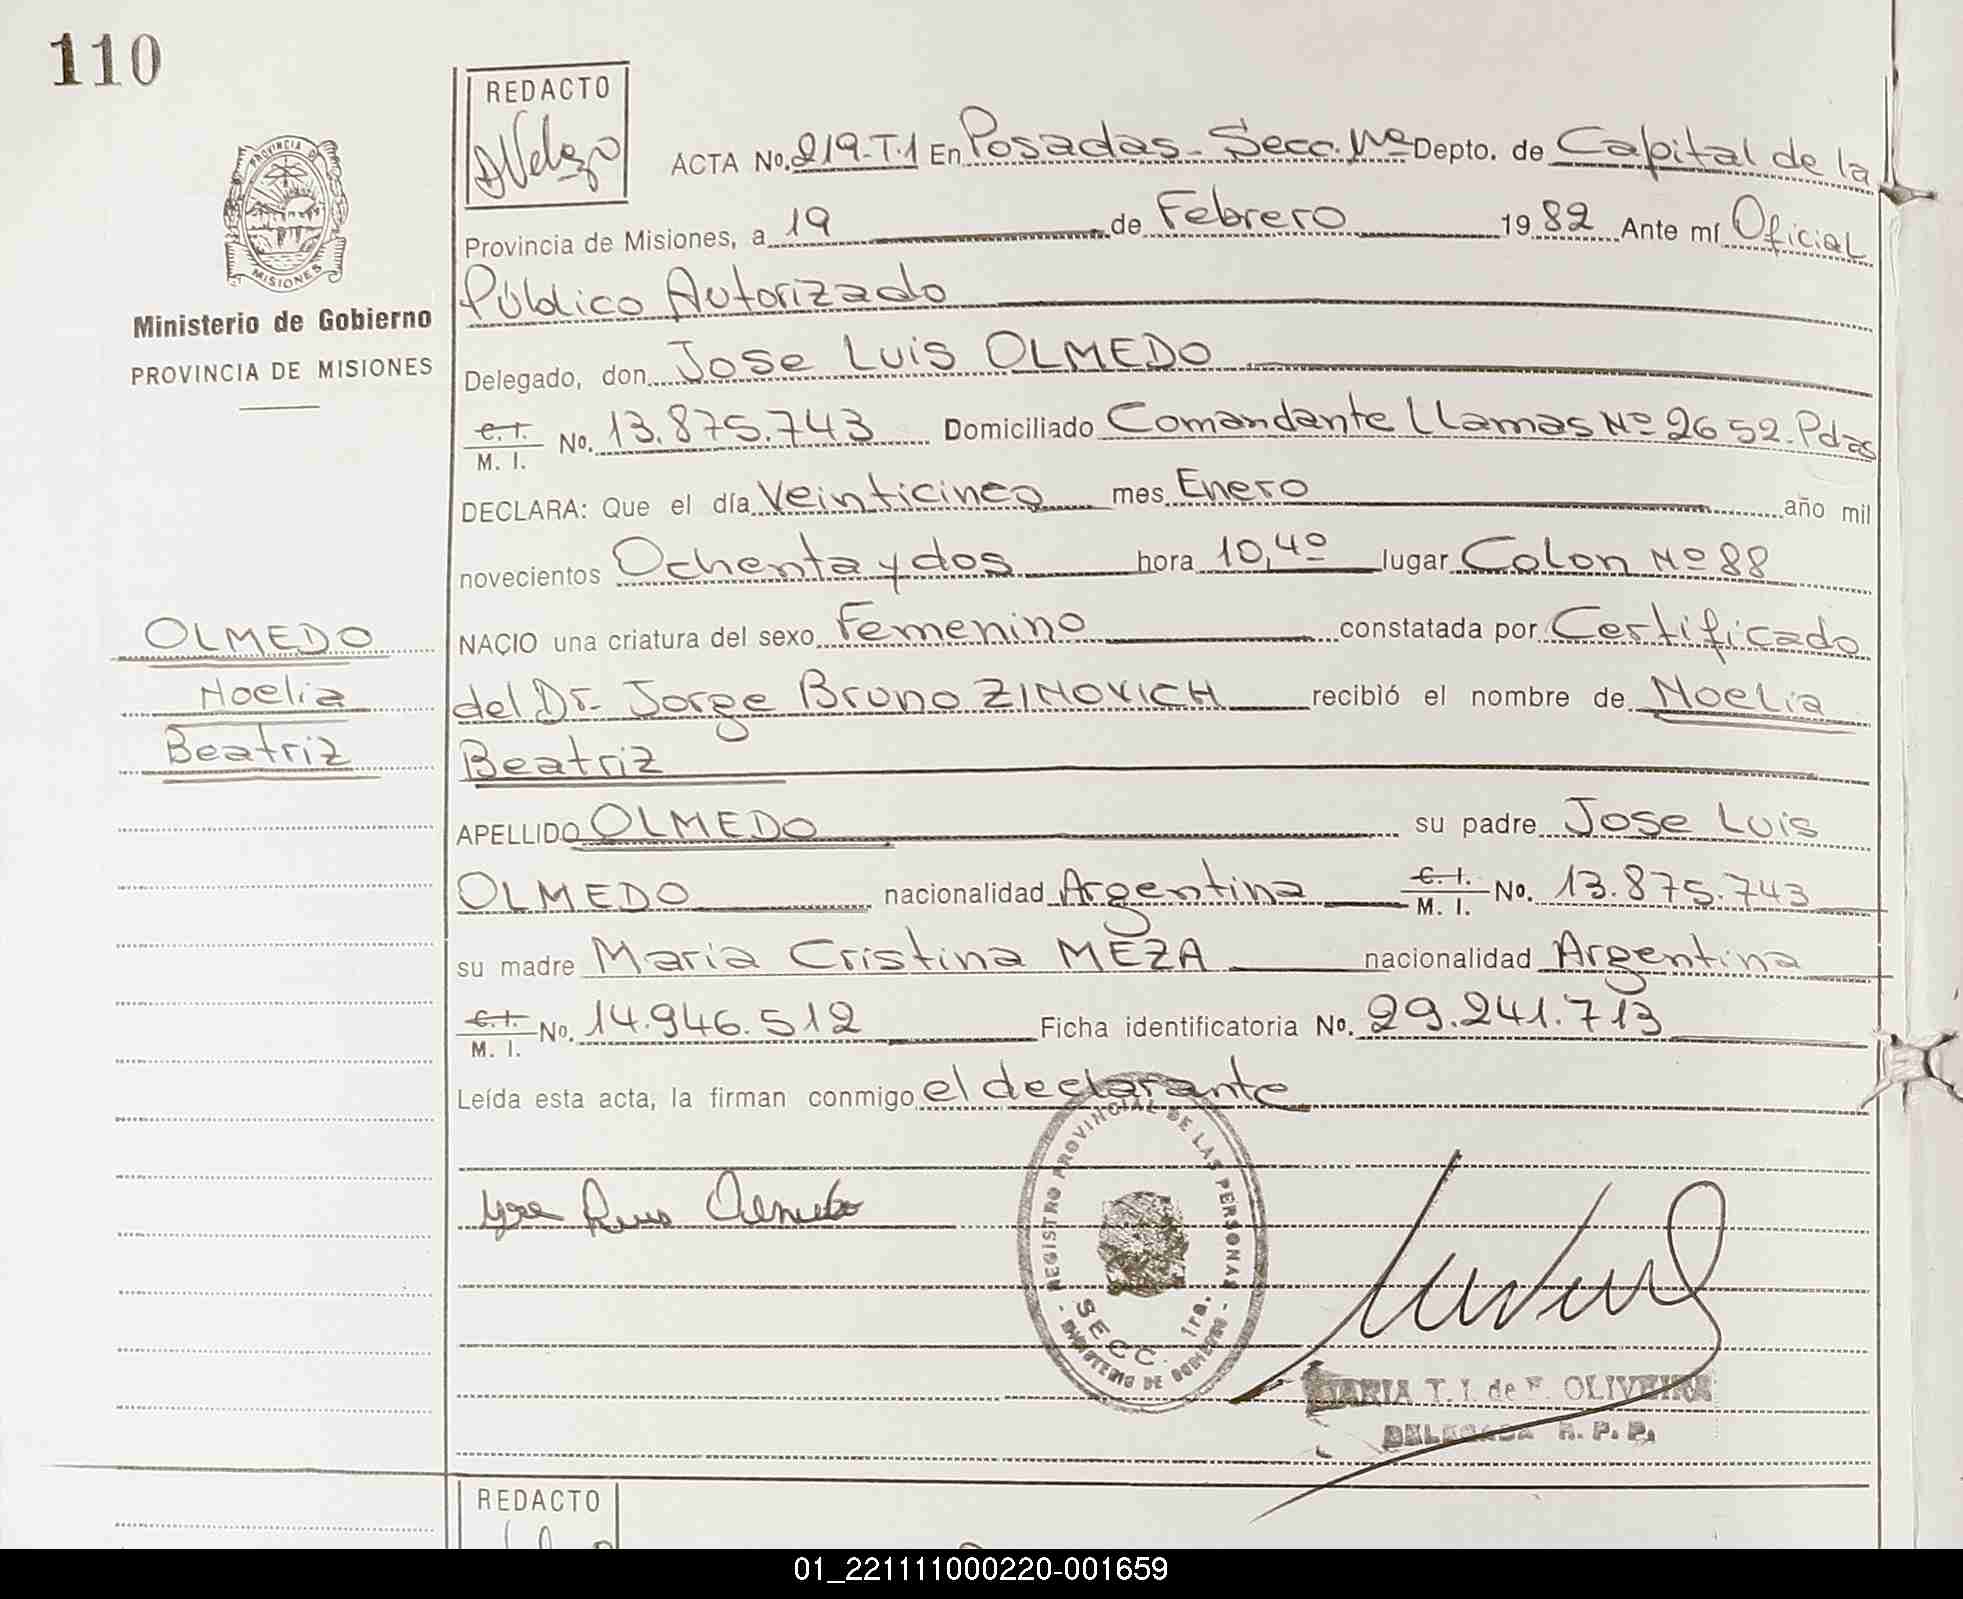 110
REDACTO
PROVINCIA D
MISIONES
Ministerio de Gobierno
PROVINCIA DE MISIONES
ACTA No. 219-T.1 En Posadas - Secc. 1ra Depto. de Capital de la
Provincia de Misiones, a 19 de Febrero 1982 Ante mí Oficial
Público Autorizado
Delegado, don Jose Luis OLMEDO
C.I. M.I. No. 13.875.743 Domiciliado Comandante LLamas Nº 2652. Pdas
DECLARA: Que el día Veinticinco mes Enero año mil
novecientos Ochenta y dos hora 10,40 lugar Colon Nº 88
NACIO una criatura del sexo Femenino constatada por Certificado
del Dr. Jorge Bruno ZINOVICH recibió el nombre de Noelia
Beatriz
APELLIDO OLMEDO su padre Jose Luis
OLMEDO nacionalidad Argentina C.I. M.I. No. 13.875.743
su madre Maria Cristina MEZA nacionalidad Argentina
C.I. M.I. No. 14.946.512 Ficha identificatoria No. 29.241.713
Leída esta acta, la firman conmigo el declarante
OLMEDO
Noelia
Beatriz
Jose Luis Olmedo
REGISTRO PROVINCIAL DE LAS PERSONAS
SECC. 1ra.
MINISTERIO DE GOBIERNO
MARIA T. I. de F. OLIVEIRA
DELEGADA R. P. P.
REDACTO
01_221111000220-001659